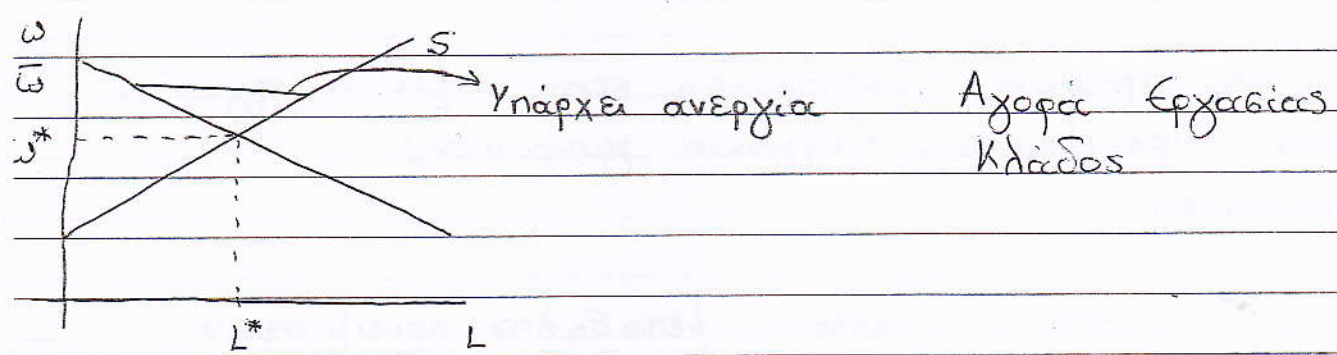 ω
ω̅
S
Υπάρχει ανεργία
Αγορά Εργασίας
ω*
Κλάδος
L*
L